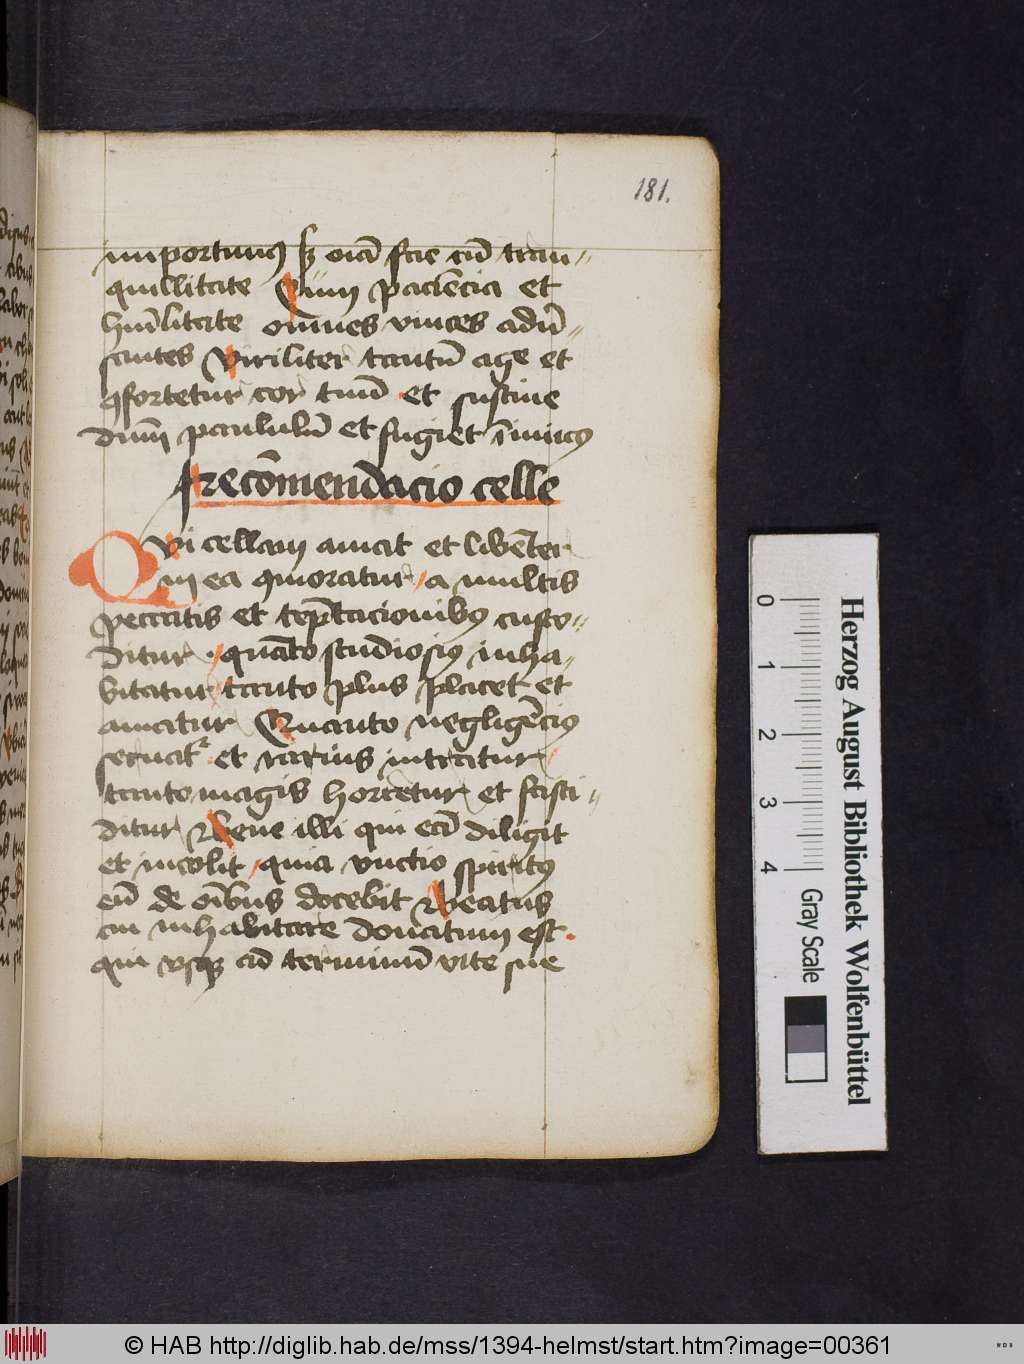 181.
importunus sz oīa fac cū tran=
quillitate Cum paciēcia et
humlitate omnes vinces adū=
santes Viriliter tantū age et
ꝯfortetur cor tuū et sustine
dnm paululū et fugiet īimicus
Recōmendacio celle
Qvi cellam amat et libēter
in ea ꝯmoratur a multis
peccatis et teptacionibus custo=
ditur quāto studiosius inha-
bitatur tanto plus placet et
amatur Quanto negligēcius
seruatr et rarius intratur
tanto magis horretur et fasti=
ditur Bene illi qui eā diligit
et incolit quia vnctio spiritus
eū de oībus docebit Beatus
cui inhabitare donatum est
qui vsqꝫ ad terminū vite sue
Herzog August Bibliothek Wolfenbüttel
0 1 2 3 4 Gray Scale
© HAB http://diglib.hab.de/mss/1394-helmst/start.htm?image=00361